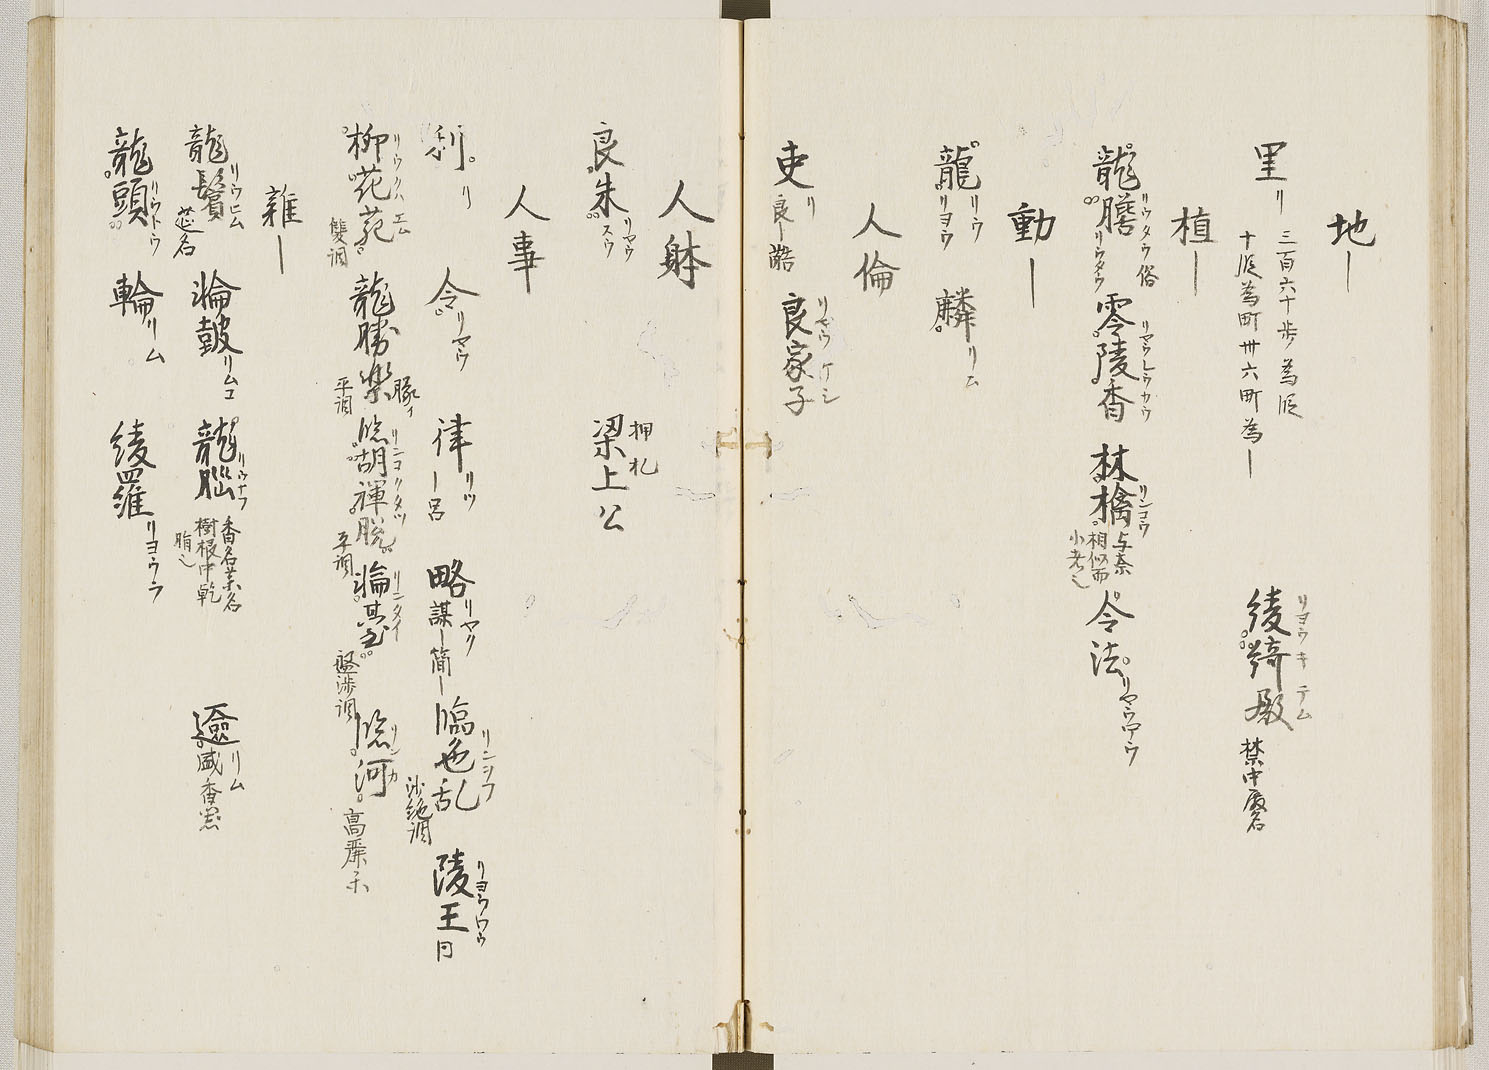 地｜
里 リ 三百六十歩為段 十段為町卅六町為｜ 綾綺殿 リヨウキテム 禁中殿名
植｜
龍膽 リウタウ俗 リウタウ 零陵香 リヤウレウカウ 林檎 リンコウ 与奈相似而小者也 令法 リヤウハウ
動｜
龍 リウ リヨウ 麟 リム
人倫
吏 リ 良｜ 良家子 リヤウケシ
人躰
良朱 リヤウスウ 梁上公 押札
人事
利 リ 令 リヤウ 律 リツ ｜呂 略 リヤク 謀｜ 簡｜ 臨邑乱 リンシフ 沙絶調 陵王 リヨウワウ 同
柳花苑 リウクハエム 雙調 龍勝樂 平調 臨胡褌脱 リンコクタツ 平調 輪臺 リンタイ 盤渉調 臨河 リンカ 高麗樂
雜｜
龍鬢 リウヒム 莚名 輪鼓 リムコ 龍腦 リウナフ 香名薬名 樹根中乾脂也 匳 リム 盛香器
龍頭 リウトウ 輪 リム 綾羅 リヨウラ